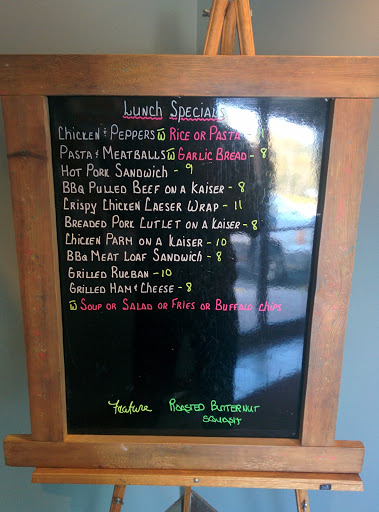 Lunch Specials
Chicken & Peppers w Rice or Pasta -
Pasta & Meatballs w Garlic Bread - 8
Hot Pork Sandwich - 9
BBQ Pulled Beef on a Kaiser - 8
Crispy Chicken Caeser Wrap - 11
Breaded Pork Cutlet on a Kaiser - 8
Chicken Parm on a Kaiser - 10
BBQ Meat Loaf Sandwich - 8
Grilled Rueban - 10
Grilled Ham & Cheese - 8
w Soup or Salad or Fries or Buffalo Chips
Feature Roasted Butternut
Squash